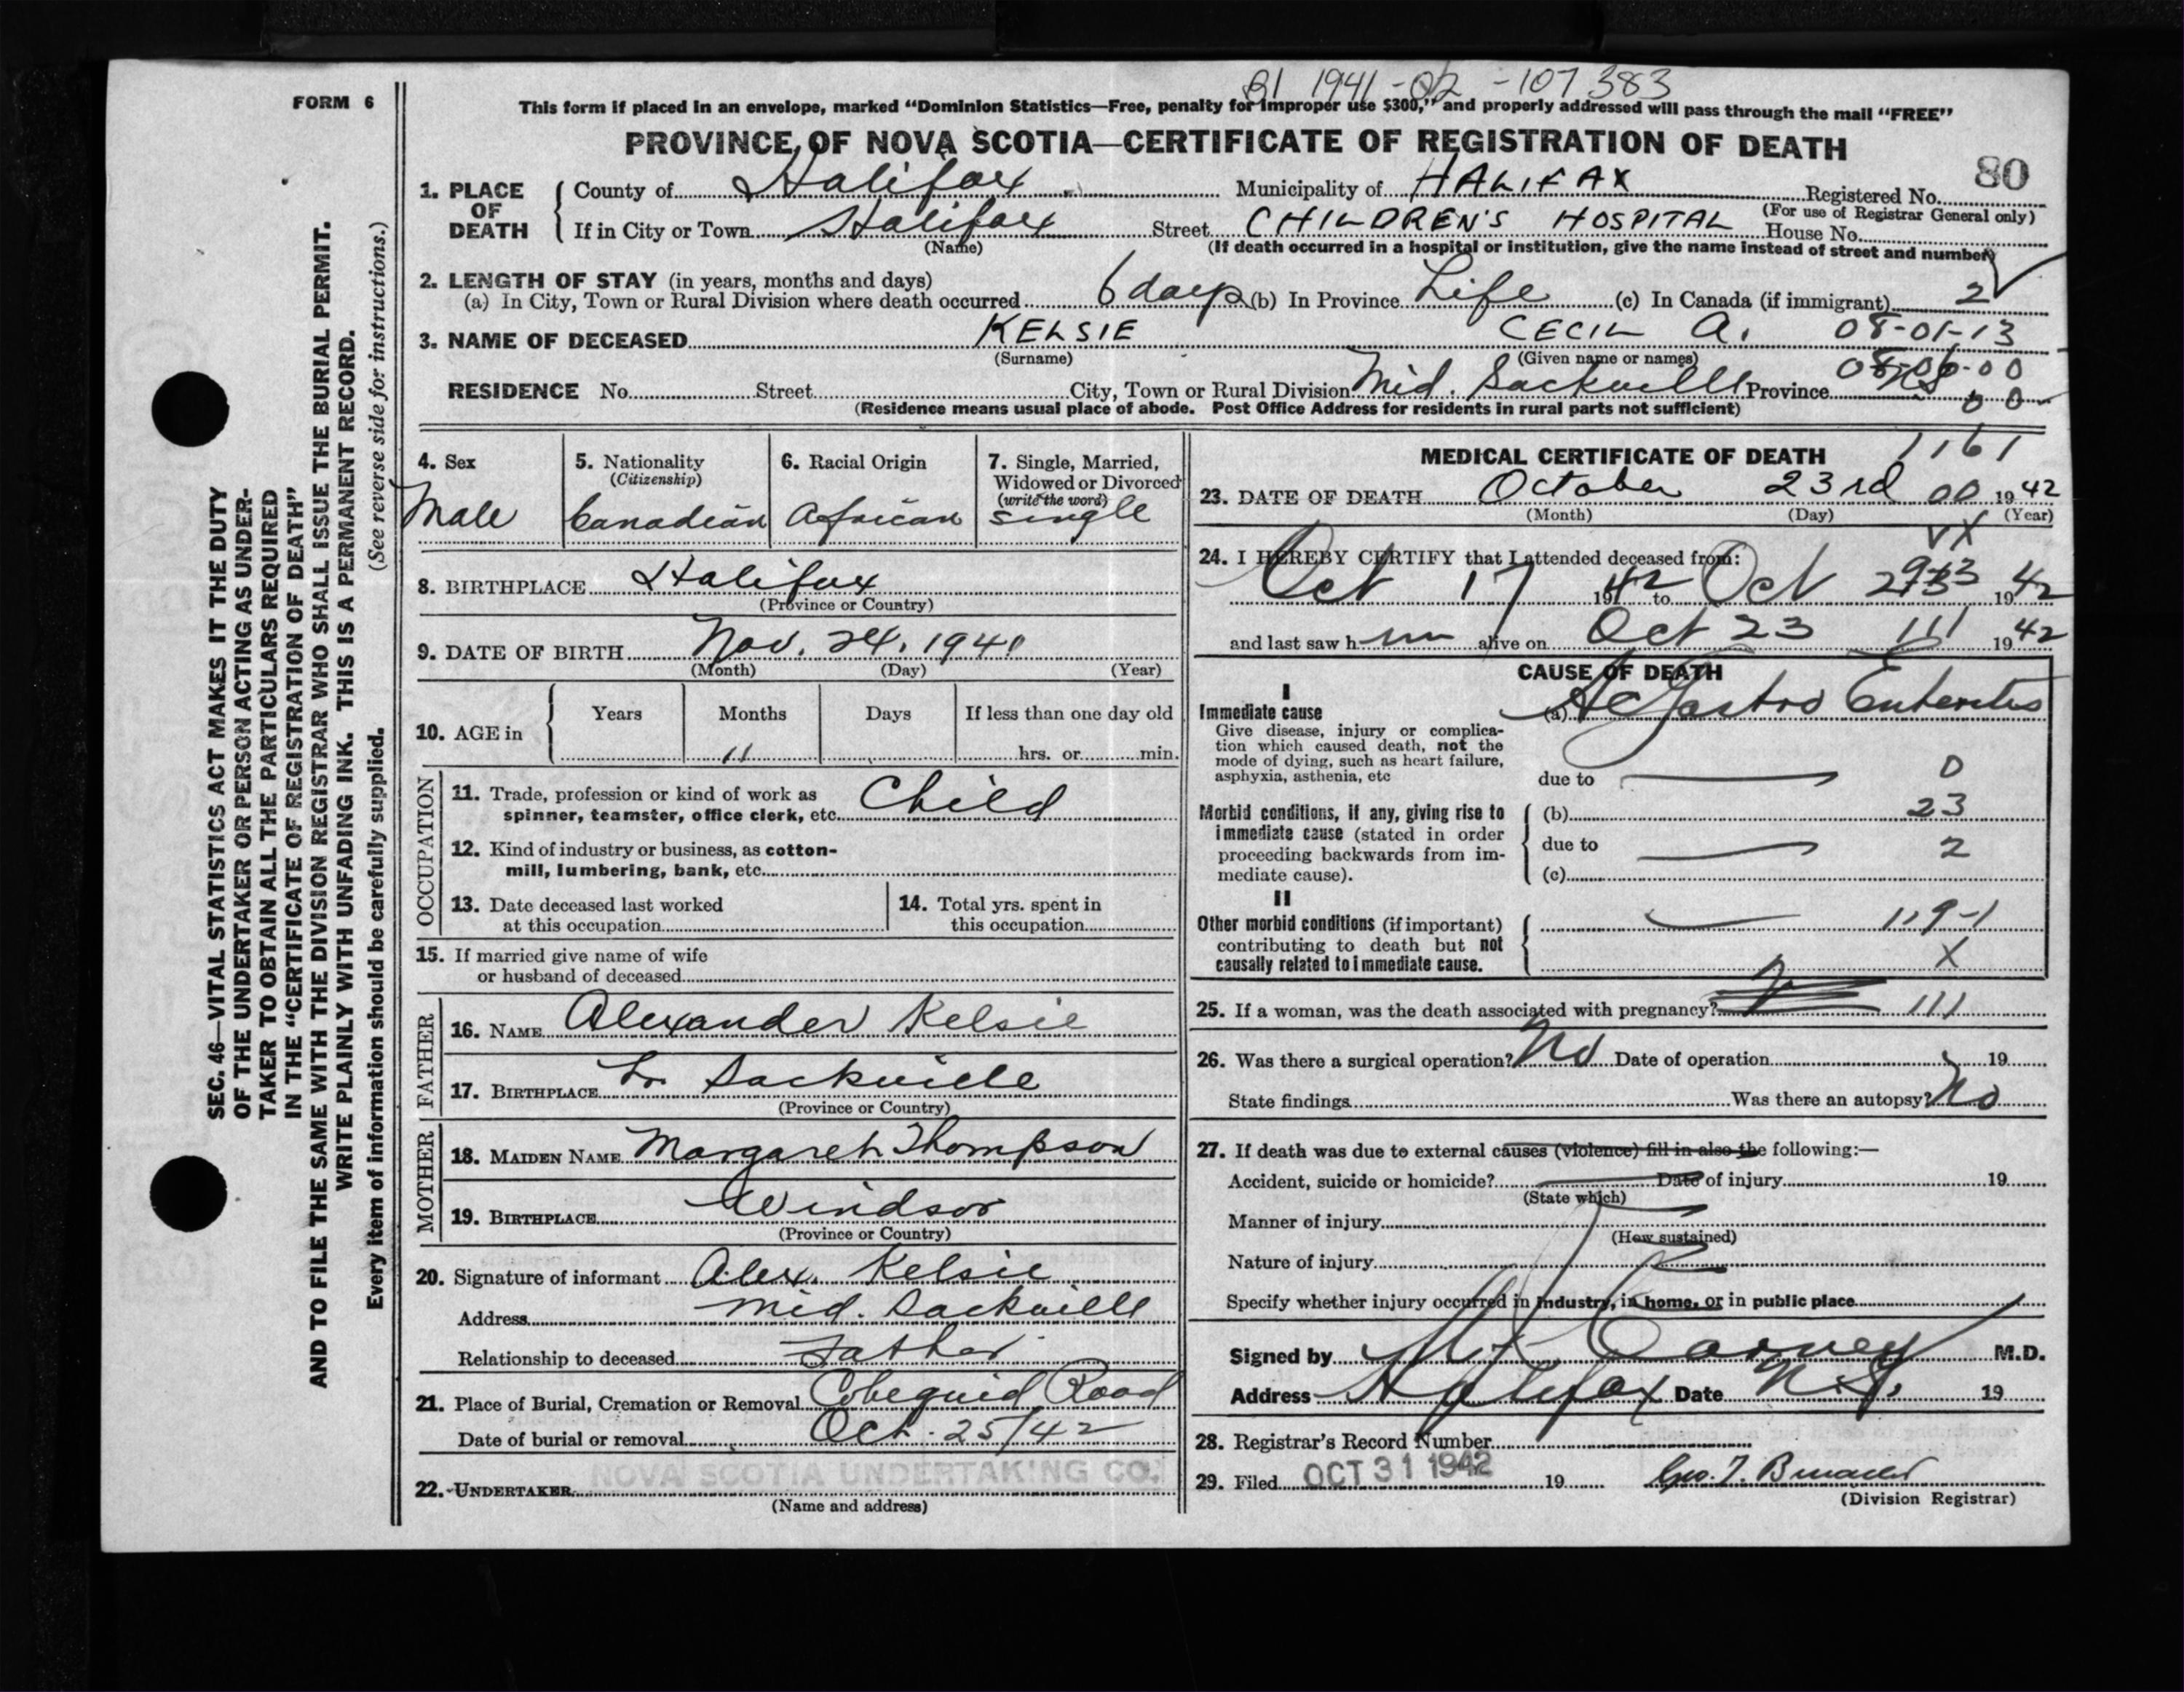 B1 1941-02-107383
FORM 6
This form if placed in an envelope, marked “Dominion Statistics—Free, penalty for improper use $300,” and properly addressed will pass through the mail “FREE”
PROVINCE OF NOVA SCOTIA—CERTIFICATE OF REGISTRATION OF DEATH
80
1. PLACE OF DEATH
County of Halifax Municipality of HALIFAX Registered No.
(For use of Registrar General only)
If in City or Town Halifax Street CHILDREN'S HOSPITAL House No.
(Name) (If death occurred in a hospital or institution, give the name instead of street and number)
2. LENGTH OF STAY (in years, months and days)
(a) In City, Town or Rural Division where death occurred 6 days (b) In Province Life (c) In Canada (if immigrant) 2
3. NAME OF DECEASED KELSIE CECIL A. 08-01-13
(Surname) (Given name or names)
08-06-00
RESIDENCE No. Street City, Town or Rural Division Mid. Sackville Province NS
00
(Residence means usual place of abode. Post Office Address for residents in rural parts not sufficient)
4. Sex
Male
5. Nationality
(Citizenship)
Canadian
6. Racial Origin
African
7. Single, Married,
Widowed or Divorced
(write the word)
single
8. BIRTHPLACE Halifax
(Province or Country)
9. DATE OF BIRTH Nov. 24, 1941
(Month) (Day) (Year)
10. AGE in
Years Months Days If less than one day old
11 hrs. or min.
OCCUPATION
11. Trade, profession or kind of work as
spinner, teamster, office clerk, etc. Child
12. Kind of industry or business, as cotton-
mill, lumbering, bank, etc.
13. Date deceased last worked
at this occupation
14. Total yrs. spent in
this occupation
15. If married give name of wife
or husband of deceased
FATHER
16. NAME Alexander Kelsie
17. BIRTHPLACE Lr. Sackville
(Province or Country)
MOTHER
18. MAIDEN NAME Margaret Thompson
19. BIRTHPLACE Windsor
(Province or Country)
20. Signature of informant Alex. Kelsie
Address Mid. Sackville
Relationship to deceased Father
21. Place of Burial, Cremation or Removal Cobequid Road
Date of burial or removal Oct. 25/42
NOVA SCOTIA UNDERTAKING CO.
22. UNDERTAKER
(Name and address)
1161
MEDICAL CERTIFICATE OF DEATH
23. DATE OF DEATH October 23rd 00 1942
(Month) (Day) (Year)
24. I HEREBY CERTIFY that I attended deceased from:
Oct 17 1942 to Oct 23 1942
and last saw him alive on Oct 23 111 1942
CAUSE OF DEATH
I
Immediate cause
Give disease, injury or complica-
tion which caused death, not the
mode of dying, such as heart failure,
asphyxia, asthenia, etc
(a) Ac Gastro Enteritis
due to 0
Morbid conditions, if any, giving rise to
immediate cause (stated in order
proceeding backwards from im-
mediate cause).
(b) 23
due to 2
(c)
II
Other morbid conditions (if important)
contributing to death but not
causally related to immediate cause.
119-1
X
25. If a woman, was the death associated with pregnancy? 111
26. Was there a surgical operation? No Date of operation 19
State findings Was there an autopsy? No
27. If death was due to external causes (violence) fill in also the following:—
Accident, suicide or homicide? Date of injury 19
(State which)
Manner of injury
(How sustained)
Nature of injury
Specify whether injury occurred in industry, in home, or in public place
Signed by Carney M.D.
Address Halifax Date N.S. 19
28. Registrar's Record Number
29. Filed OCT 31 1942 19
(Division Registrar)
SEC. 46—VITAL STATISTICS ACT MAKES IT THE DUTY
OF THE UNDERTAKER OR PERSON ACTING AS UNDER-
TAKER TO OBTAIN ALL THE PARTICULARS REQUIRED
IN THE “CERTIFICATE OF REGISTRATION OF DEATH”
AND TO FILE THE SAME WITH THE DIVISION REGISTRAR WHO SHALL ISSUE THE BURIAL PERMIT.
WRITE PLAINLY WITH UNFADING INK. THIS IS A PERMANENT RECORD.
Every item of information should be carefully supplied. (See reverse side for instructions.)